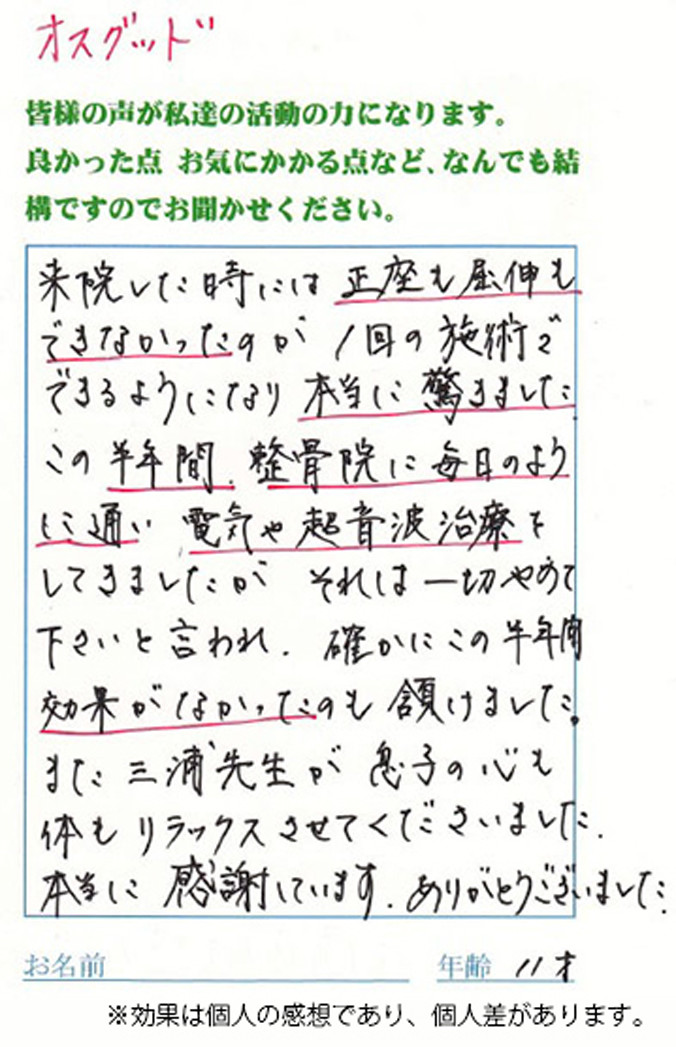 オスグッド
皆様の声が私達の活動の力になります。
良かった点 お気にかかる点など、なんでも結
構ですのでお聞かせください。
来院した時には 正座も屈伸も
できなかったのが 1回の施術で
できるようになり 本当に驚きました.
この半年間、整骨院に毎日のよう
に通い 電気や超音波治療を
してきましたが それは一切やめて
下さいと言われ、確かにこの半年間
効果がなかったのも頷けました。
また三浦先生が息子の心も
体もリラックスさせてくださいました.
本当に感謝しています. ありがとうございました.
お名前 年齢 11才
※効果は個人の感想であり、個人差があります。